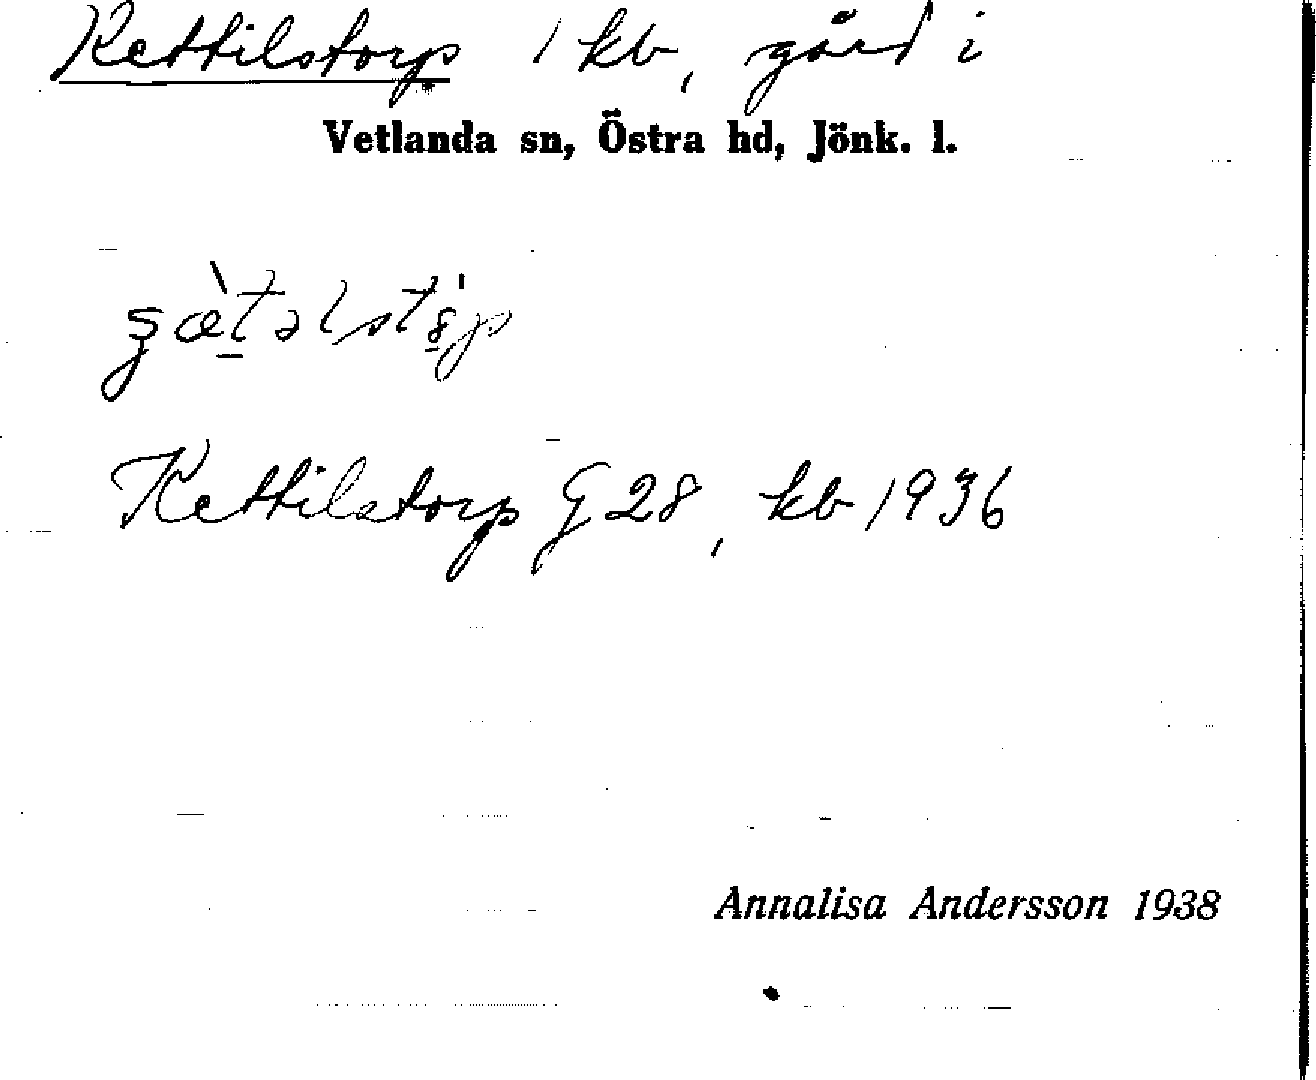 Kettilstorp 1 kb, gård i
Vetlanda sn, Östra hd, Jönk. l.
Kettilstorp G 28, kb 1936
Annalisa Andersson 1938